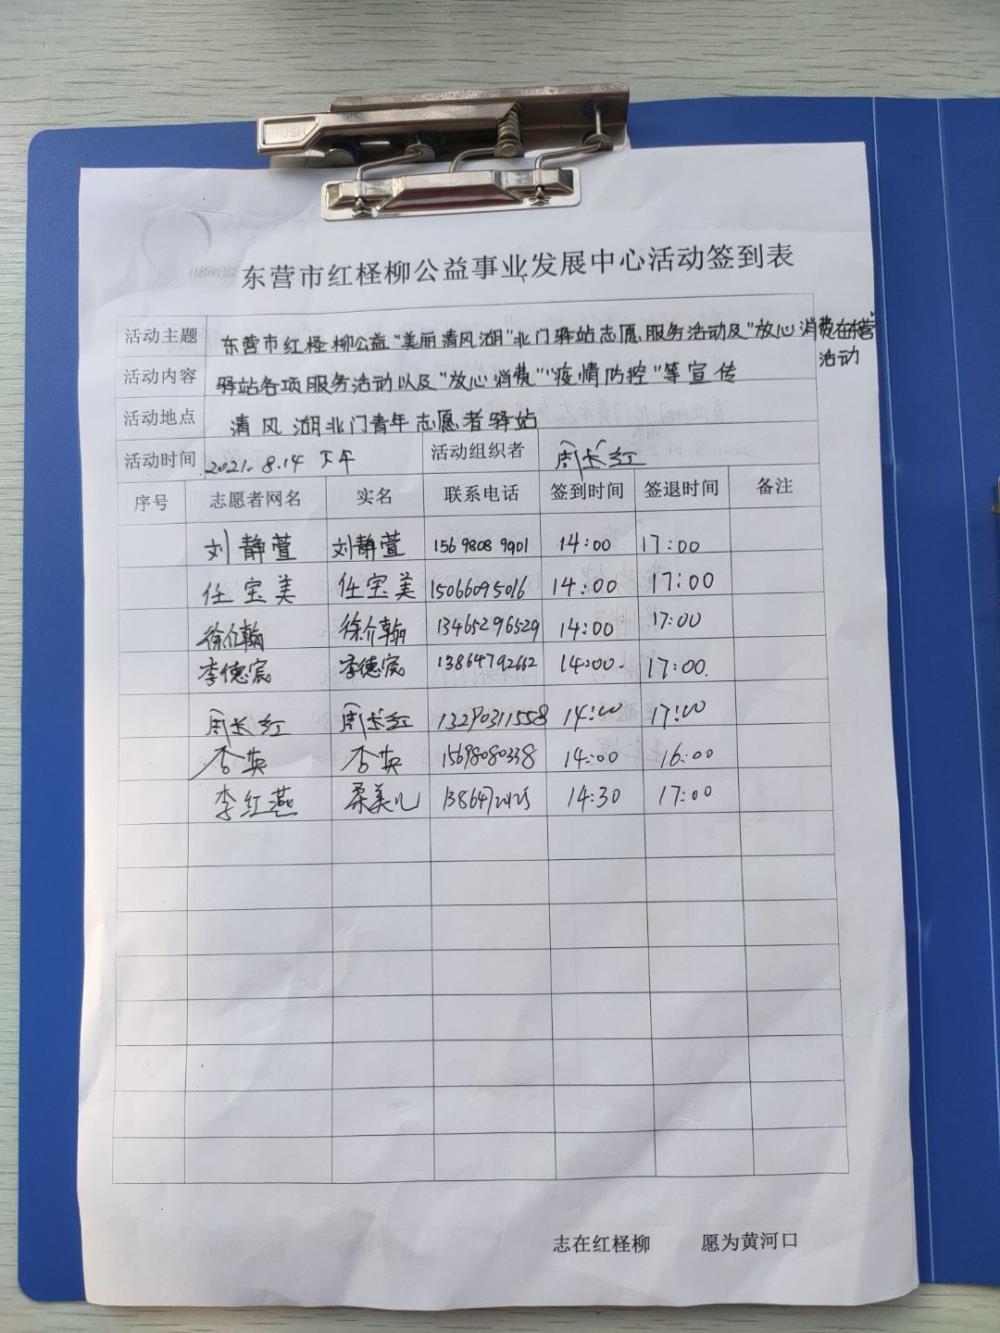 PUSH
东营市红柽柳公益事业发展中心活动签到表
活动主题 东营市红柽柳公益“美丽清风湖”北门驿站志愿服务活动及“放心消费在东营”
活动
活动内容 驿站各项服务活动以及“放心消费”“疫情防控”等宣传
活动地点 清风湖北门青年志愿者驿站
活动时间 2021.8.14 下午 活动组织者 周长红
序号 志愿者网名 实名 联系电话 签到时间 签退时间 备注
刘静萱 刘静萱 156 9808 9901 14:00 17:00
任宝美 任宝美 15066095016 14:00 17:00
徐介翰 徐介翰 13465296529 14:00 17:00
李德宸 李德宸 13864792662 14:00 17:00
周长红 周长红 13290311558 14:00 17:00
杏英 杏英 15698080338 14:00 16:00
李红燕 柔美儿 14:30 17:00
志在红柽柳 愿为黄河口